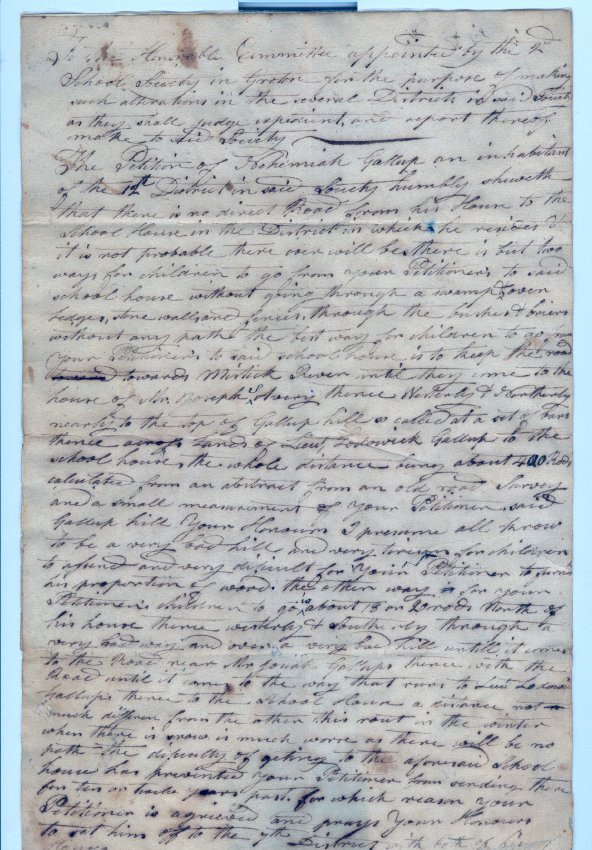 To the Honorable Committee appointed by the 2d
School Society in Groton for the purpose of making
such alterations in the several Districts in said Society
as they shall judge expedient, and report thereof
make to sid Society
The Petition of Nehemiah Gallup an inhabitant
of the 12th District in said Society humbly sheweth
that there is no direct Road from his House to the
School House in the District in which he resides &
it is not probable there ever will be. there is but two
ways for children to go from your Petitioners to said
school house without going through a swamp, over
ledges, stone walls, and fences, through the bushes & briers
without any path the best way for children to go from
your Petitioners to said school house is to keep the road
towards Mistick River until they come to the
house of Mr Joseph S Avery thence Westerly & Northerly
nearly to the top of Gallup hill so called at a set of bars
thence across lands of Lieut. Lodowick Gallup to the
school house, the whole distance being about 400 Rods
calculated from an abstract from an old Survey
and a small measurement of your Petitioner said
Gallup hill Your Honours I presume all know
to be a very bad hill and very for children
to assend and very dificult for Your Petitioner to furnish
his proportion of wood. the other way is for your
Petitioners children to go is about 18 or 20 rods North of
his house thence westerly & southerly through a
very bad way and over a very bad hill until it comes
to the Road near Mr thence with the
Road until it comes to the way that runs to Lieut Lodowick
Gallups thence to the School House a distance not
much differen from the other this rout in the winter
when there is snow is much worse as there will be no
path the dificulty of geting to the aforesaid School
house has prevented Your Petitioner from sending there
for ten or twelve years past. for which reason your
Petitioner is agrieved and prays Your Honours
to set him off to the 9th District with both of